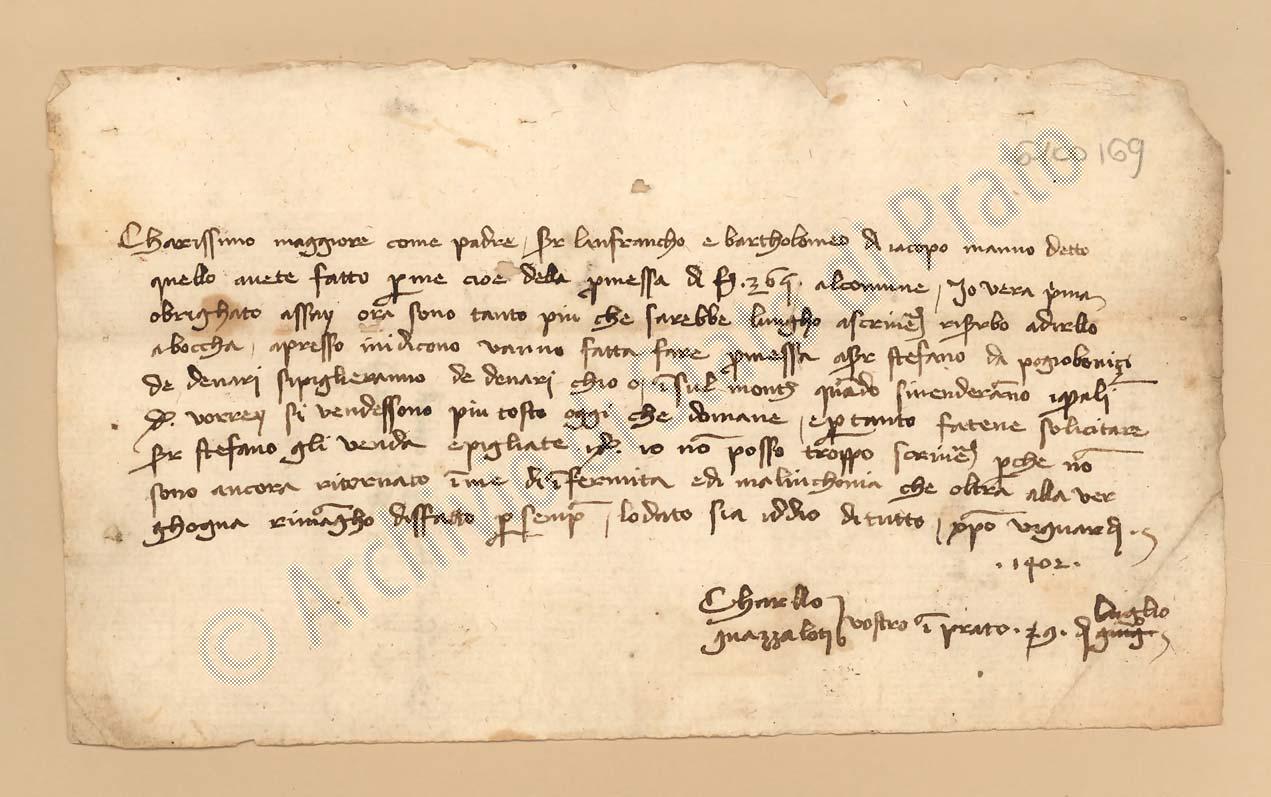 6100 169
Charissimo maggiore come padre, ser lanfrancho e bartholomeo di iacopo manno detto
quello avete fatto p me cioe della pmessa di f. 261. alcomune, Io vera prima
obrighato assay ora sono tanto piu che sarebbe lungho ascrivere riserbo adirllo
aboccha, apresso midicono vanno fatta fare pmessa aser stefano da pogiobonizi
de denari sipiglieranno de denari chio o ĩsul monte quãdo sivenderãno iquali
d. vorrey si vendessono piu tosto oggi che domane, epertanto fatene solicitare
ser stefano gli venda epigliate id. io nõ posso troppo scrivere pche nõ
sono ancora ritornato ĩme di ĩfermita edi malinchonia che oltra alla ver
ghogna rimãgho disfatto p semp, lodato sia iddio di tutto, xpo viguardi.
.1402.
Charllo
guazzaloti vostro ĩ prato. 29. di giug luglio
© Archivio di Stato di Prato